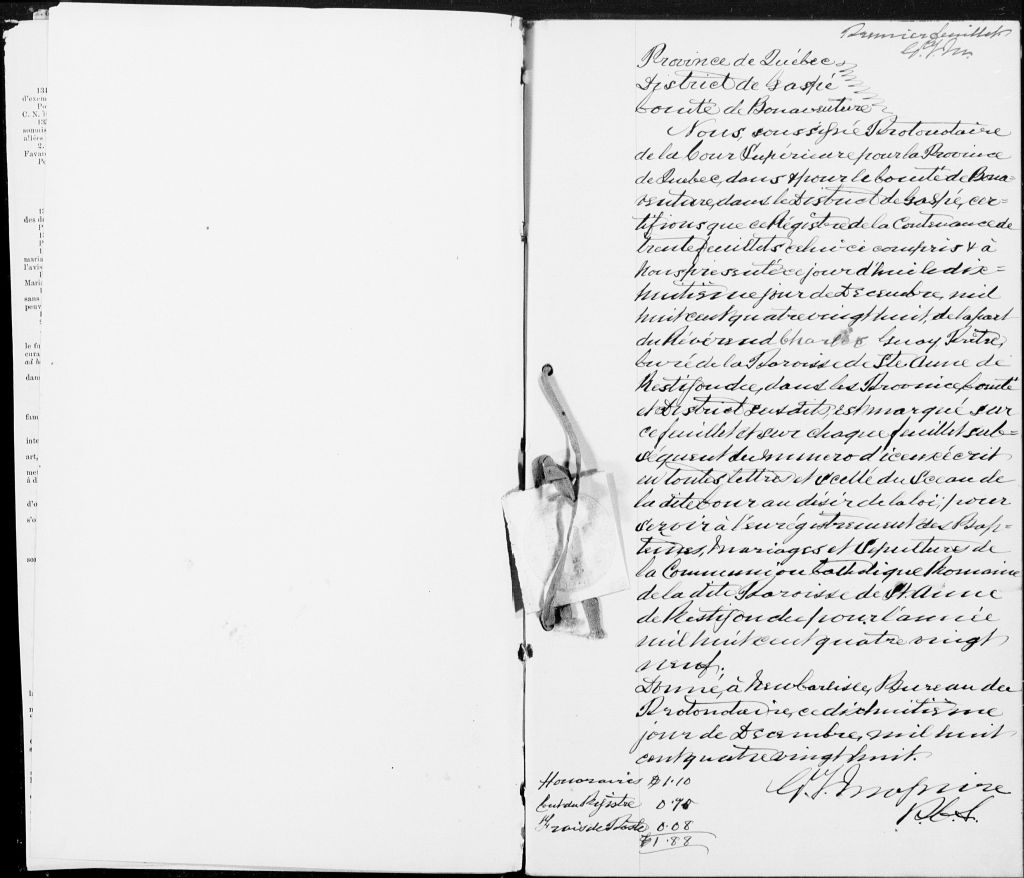 131
d'exem
Po
C. N. 1
132
soumis
allées
2.
Favar
Po
des de
maria
l'avis
Maria
sans
peuv
le fu
cura
ad h
dans
fam
inte
art,
met
á d
d'o
s'o
son
Premier feuillet
Province de Québec
District de Gaspé
Comté de Bonaventure
Nous, soussigné Protonotaire
de la Cour Supérieure pour la Province
de Québec, dans & pour le Comté de Bona=
venture, dans le District de Gaspé, cer=
tifions que ce Régistre de la Contenance de
trente feuillets celui-ci compris & à
nous présenté ce jour d'hui le dix=
huitième jour de Décembre, mil
huit cent quatre vingt huit, de la part
du Révérend Charles Guay Prêtre,
Curé de la Paroisse de Ste Anne de
Restigouche, dans les Province, Comté
et District susdits, est marqué sur
ce feuillet et sur chaque feuillet sub=
séquent du numero d'iceux écrit
en toutes lettres et scellé du Sceau de
la dite Cour au désir de la loi, pour
servir à l'enrégistrement des Bap=
têmes, Mariages et Sépultures de
la Communion Catholique Romaine
de la dite Paroisse de St. Anne
de Restigouche pour l'année
mil huit cent quatre vingt
neuf.
Donné, à New Carlisle, Bureau du
Protonotaire, ce dixhuitième
jour de Décembre, mil huit
cent quatre vingt huit.
Honoraires $1.10
Cout du Régistre 0.70
Frais de Poste 0.08
$1.88
P.C.S.